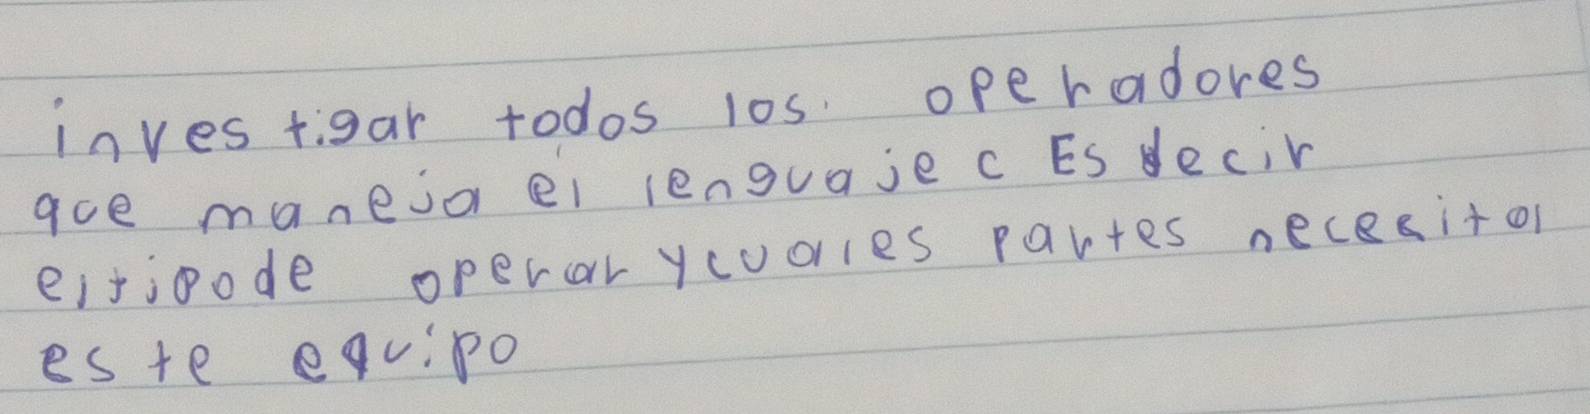 investigar todos los operadores
que maneja el lenguaje c Es decir
el tipo de operar y cuales partes necesita
este equipo